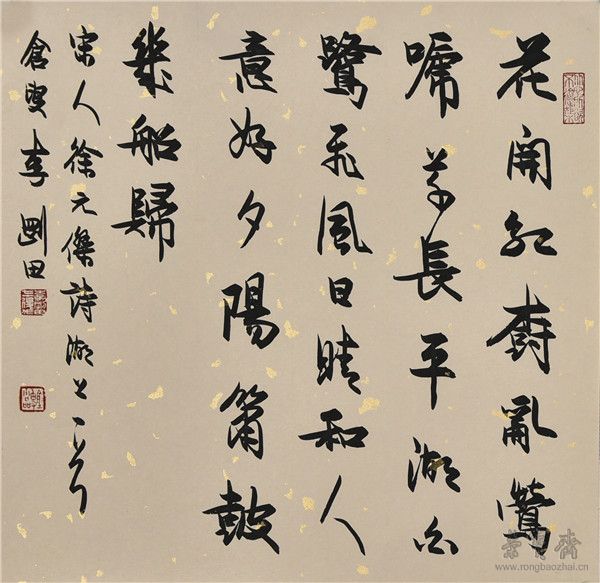 花開紅樹亂鶯
啼草長平湖白
鷺飛風日晴和人
意好夕陽簫鼓
幾船歸
宋人徐元傑詩湖上一首
倉叟李剛田
榮寶齋
www.rongbaozhai.cn